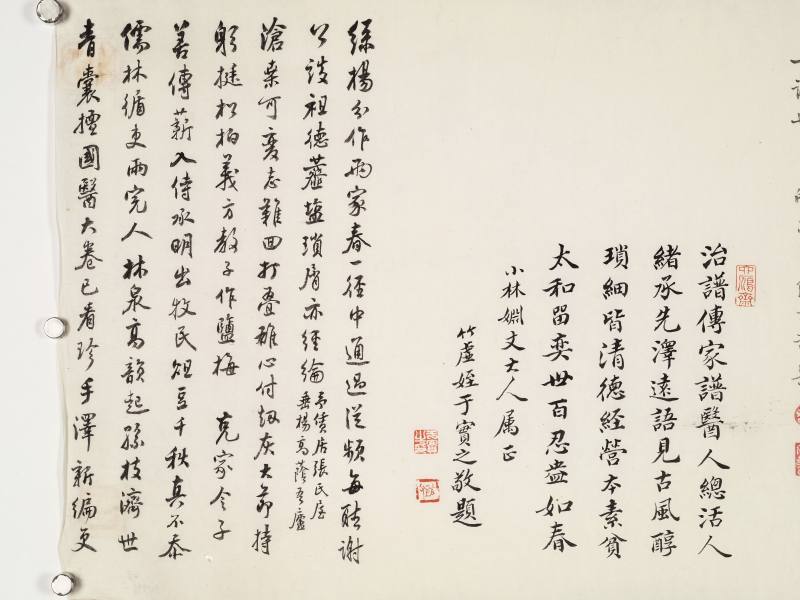 治譜傳家譜醫人總活人
緒承先澤遠語見古風醇
瑣細皆清德經營本素貧
太和留奕世百忍盎如春
小林姻丈大人属正
竹虛姪于寶之敬題
綠楊分作兩家春一徑中通過從頻每聴謝
公談祖德虀鹽瑣屑亦經綸
予賃居張氏屋
垂楊高蔭吾廬
滄桒可變志難回打叠雄心付刼灰大節持
躬挺松柏義方教子作鹽梅 克家令子
善傳薪入侍承明出牧民俎豆千秋真不忝
儒林循吏兩完人林泉高韻起孫枝濟世
青囊擅國醫大卷已看珍手澤新編更